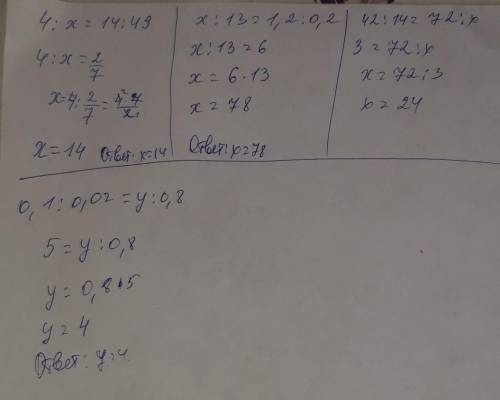 4 : x = 14 : 49
4 : x = 2/7
x = 4 : 2/7 = 4² · 7 / 2
x = 14 Ответ: x = 14
x : 13 = 1,2 : 0,2
x : 13 = 6
x = 6 · 13
x = 78
Ответ: x = 78
42 : 14 = 72 : x
3 = 72 : x
x = 72 : 3
x = 24
0,1 : 0,02 = y : 0,8
5 = y : 0,8
y = 0,8 · 5
y = 4
Ответ: y = 4.